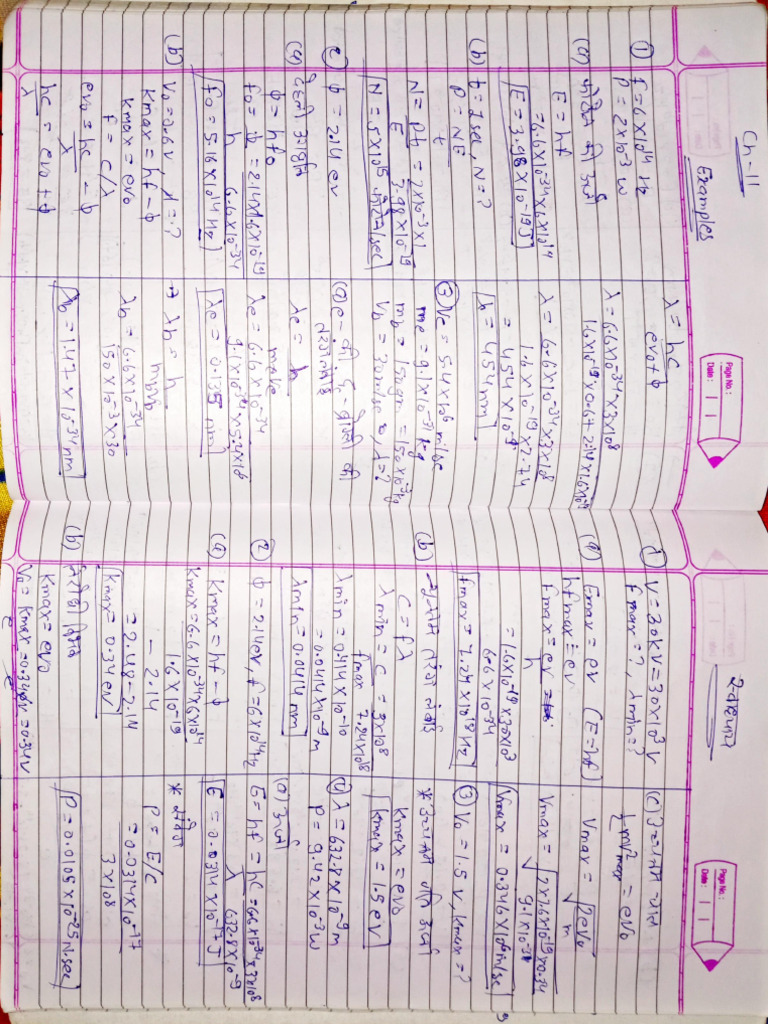 Ch-11
Examples
Page No.:
Date:
① f = 6×10¹⁴ Hz
P = 2×10⁻³ W
(a) फोटॉन की ऊर्जा
E = hf
= 6.6×10⁻³⁴×6×10¹⁴
E = 3.98×10⁻¹⁹ J
(b) t = 1 sec, N = ?
P = NE/t
N = Pt/E = 2×10⁻³×1/3.98×10⁻¹⁹
N = 5×10¹⁵ फोटॉन/sec
② ϕ = 2.14 ev
(a) देहली आवृत्ति
ϕ = hf₀
f₀ = ϕ/h = 2.14×1.6×10⁻¹⁹/6.6×10⁻³⁴
f₀ = 5.16×10¹⁴ Hz
(b) V₀ = 0.6 V, λ = ?
Kmax = hf - ϕ
Kmax = ev₀
f = c/λ
ev₀ = hc/λ - ϕ
hc/λ = ev₀ + ϕ
λ = hc/ev₀+ϕ
λ = 6.6×10⁻³⁴×3×10⁸/1.6×10⁻¹⁹×0.6+2.14×1.6×10⁻¹⁹
λ = 6.6×10⁻³⁴×3×10⁸/1.6×10⁻¹⁹×2.74
= 454×10⁻⁹
λ = 454 nm
③ Ve = 5.4×10⁶ m/sec
me = 9.1×10⁻³¹ kg
mb = 150 gm = 150×10⁻³ kg
Vb = 30 m/sec, λ = ?
(a) e⁻ की, b - गेंद की
तरंगदैर्ध्य
λe = h/meve
λe = 6.6×10⁻³⁴/9.1×10⁻³¹×5.4×10⁶
λe = 0.135 nm
→ λb = h/mbvb
λb = 6.6×10⁻³⁴/150×10⁻³×30
λb = 1.47×10⁻³⁴ nm
अभ्यास
Page No.:
Date:
1 V = 30kV = 30×10³ V
fmax = ?, λmin = ?
(a) Emax = eV (E=hf)
hfmax = ev
fmax = ev/h
= 1.6×10⁻¹⁹×30×10³/6.6×10⁻³⁴
fmax = 7.24×10¹⁸ Hz
(b) न्यूनतम तरंगदैर्ध्य
c = fλ
λmin = c/fmax = 3×10⁸/7.24×10¹⁸
λmin = 0.414×10⁻¹⁰
= 0.0414×10⁻⁹ m
λmin = 0.0414 nm
② ϕ = 2.14ev, f = 6×10¹⁴Hz
(a) Kmax = hf - ϕ
Kmax = 6.6×10⁻³⁴×6×10¹⁴/1.6×10⁻¹⁹ - 2.14
= 2.48-2.14
Kmax = 0.34ev
(b) निरोधी विभव
Kmax = ev₀
V₀ = Kmax/e = 0.34ev/e = 0.34V
(c) उच्चतम चाल
½mv²max = eV₀
Vmax = √2eV₀/m
Vmax = √2×1.6×10⁻¹⁹×0.34/9.1×10⁻³¹
Vmax = 0.346×10⁶ m/sec
③ V₀ = 1.5 V, Kmax = ?
* उच्चतम गतिज ऊर्जा
Kmax = ev₀
Kmax = 1.5 ev
④ λ = 632.8×10⁻⁹ m
P = 9.42×10⁻³ W
(a) ऊर्जा
E = hf = hc/λ = 6.6×10⁻³⁴×3×10⁸/632.8×10⁻⁹
E = 0.0314×10⁻¹⁷ J
* संवेग
P = E/c
= 0.0314×10⁻¹⁷/3×10⁸
P = 0.0105×10⁻²⁵ N.sec